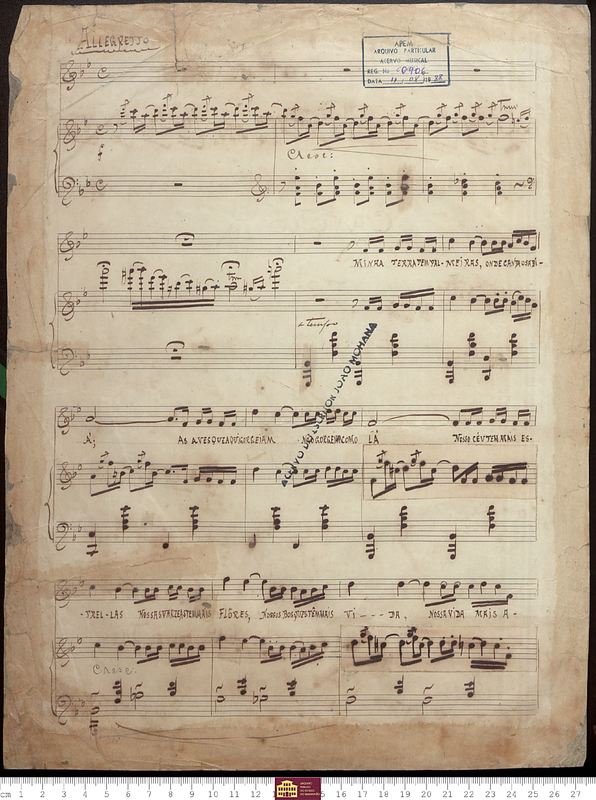 ALLEGRETTO
APEM
ARQUIVO PARTICULAR
ACERVO MUSICAL
REG. No 0906
DATA 11, 08, 19 88
tr
Cresc:
MINHA TERRA TEM PAL-MEIRAS, ONDE CANTA O SABI-
a tempo
ACERVO DO ESCRITOR JOÃO MOHANA
Á; AS AVES QUE AQUI GORGEIAM NÃO GORGEIAM COMO LÁ NOSSO CÉU TEM MAIS ES-
-TREL-LAS NOSSAS VARZEAS TEM MAIS FLÔRES, NOSSOS BOSQUES TÊM MAIS VI - - - DA, NOSSA VIDA MAIS A-
Cresc.
cm 1 2 3 4 5 6 7 8 9 10 11 12 15 16 17 18 19 20 21 22 23 24 25 26 27